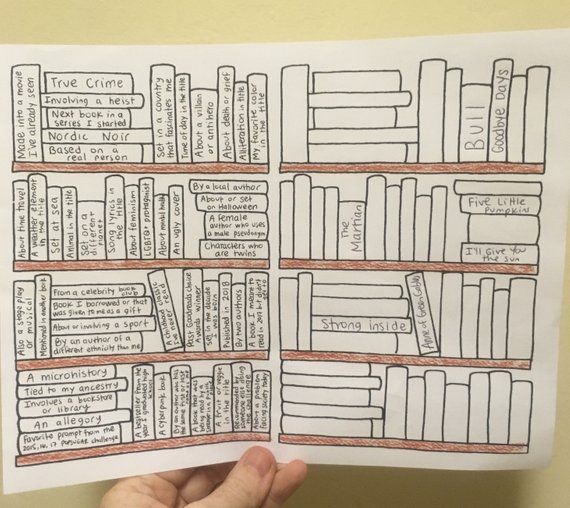 Made into a movie
I've already seen
True Crime
Involving a heist
Next book in a
series I started
Nordic Noir
Based on a
real person
Set in a country
that fascinates me
Time of day in the title
About a villain
or antihero
About death or grief
Alliteration in title
My favorite color
in the title
Bull
Goodbye Days
About time travel
A weather element
in the title
Set at sea
Animal in the title
Set on a
different
planet
Song lyrics in
the title
About feminism
LGBTQ+ protagonist
About mental health
An ugly cover
By a local author
About or set
on Halloween
A female
author who uses
a male pseudonym
Characters who
are twins
The
Martian
Five Little
Pumpkins
I'll Give You
the Sun
Also a stage play
or musical
Mentioned in another book
From a celebrity book club
Book I borrowed or that
was given to me as a gift
About or involving a sport
By an author of a
different ethnicity than me
A childhood classic
I've never read
Past Goodreads Choice
Awards winner
Set in the decade
I was born
Published in 2018
By two authors
A book I meant to
read in 2017 but didn't
get to
Strong Inside
Anne of Green Gables
A microhistory
Tied to my ancestry
Involves a bookstore
or library
An allegory
Favorite prompt from the
2015, 16, 17 popsugar challenge
A bestseller from the
year I graduated high
school
A cyberpunk book
By an author who has
the same first or last
A book that was
being read by a
stranger in a public
place
A fruit or veggie
in the title
Recommended by
someone else doing
the challenge
About a problem
facing society today